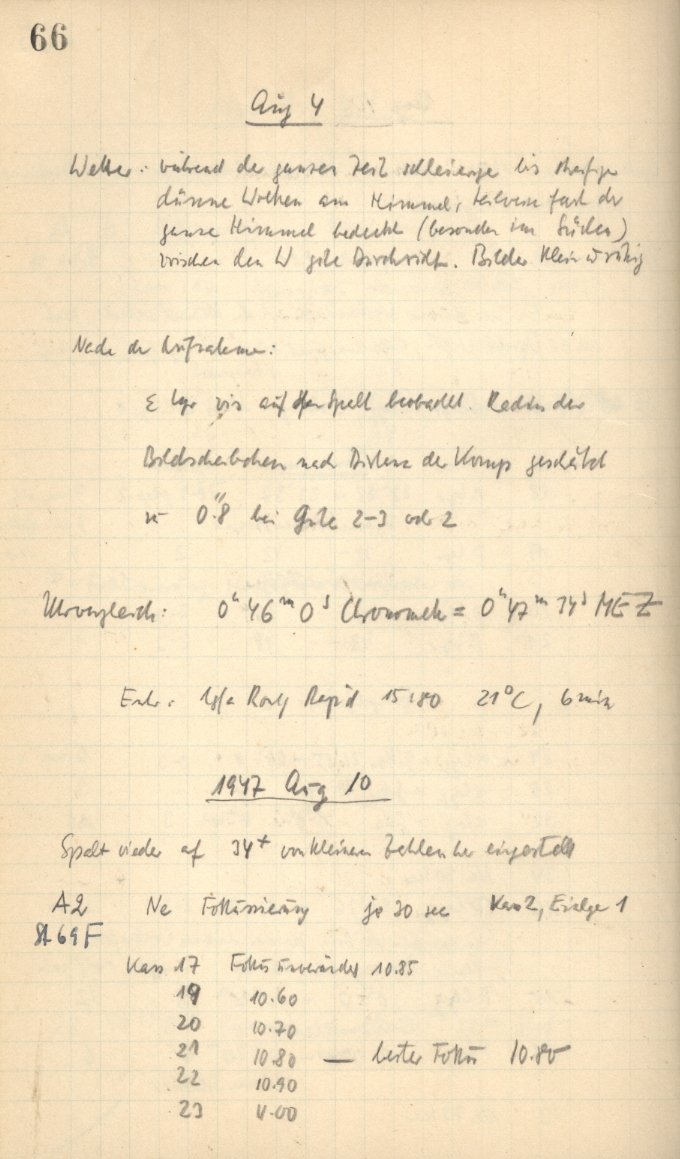 66
Aug 4
Wetter: während der ganzen Zeit schleierige bis streifige
dünne Wolken am Himmel, teilweise fast der
ganze Himmel bedeckt (besonders im Süden)
zwischen den W gute Durchsicht. Bilder klein u ruhig
Nach der Aufnahme:
ε Lyr vis auf Spalt beobachtet. Radius der
Bildscheibchen nach Distanz der Komp geschätzt
zu 0".8 bei Güte 2-3 oder 2
Uhrvergleich: 0h 46m 0s Chronometer = 0h 47m 34s MEZ
Entw. Rapid 15:80 21°C, 6 min
1947 Aug 10
Spalt wieder auf 34+ von kleinen Zahlen her eingestellt
A2 Ne Fokussierung je 30 sec Kass 2, Einlage 1
St 69F
Kass 17 Fokus unverändert 10.85
19 10.60
20 10.70
21 10.80 — bester Fokus 10.80
22 10.90
23 11.00